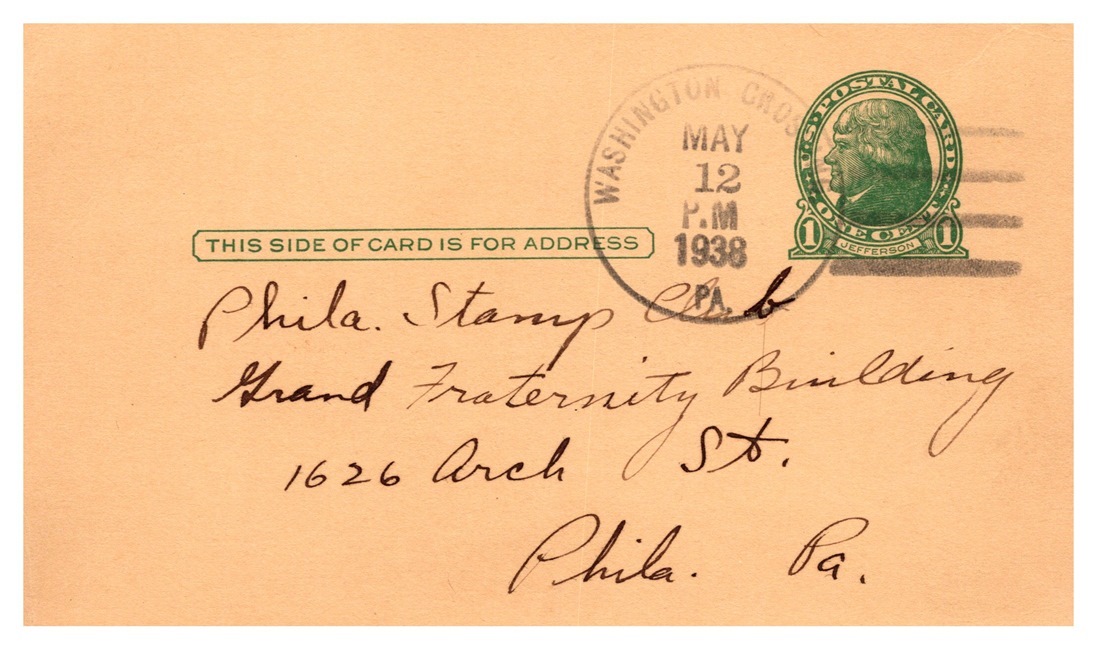 WASHINGTON CROS
MAY
12
P.M
1938
PA.
U.S. POSTAL CARD
ONE CENT
1 JEFFERSON 1
THIS SIDE OF CARD IS FOR ADDRESS
Phila. Stamp Club
Grand Fraternity Building
1626 Arch St.
Phila. Pa.